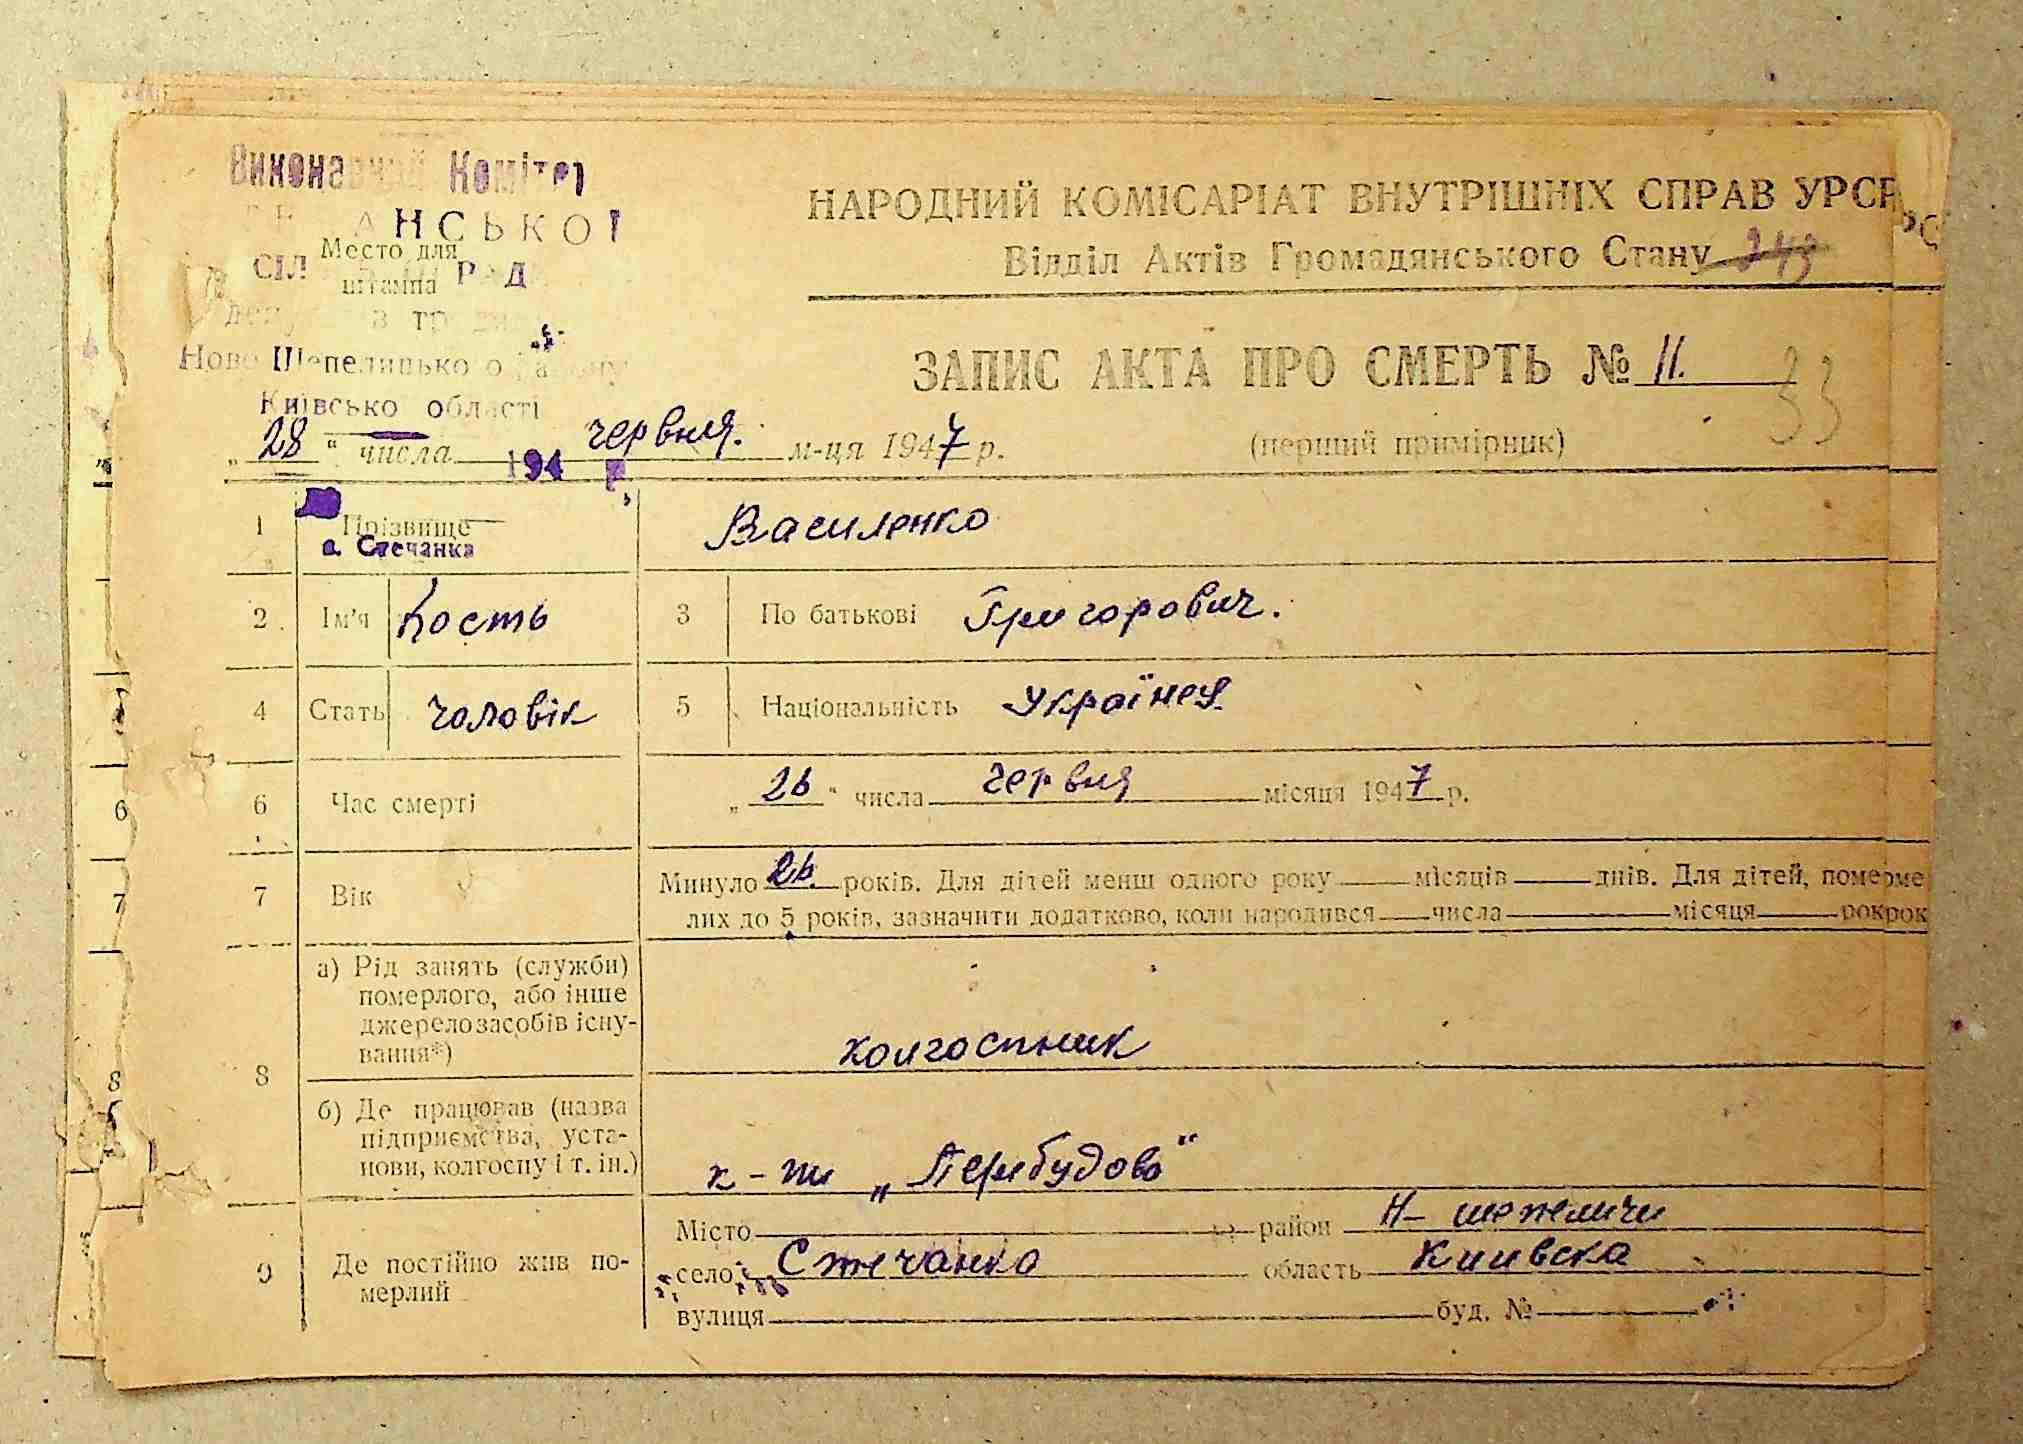 Виконавчий Комітет
АНСЬКОЇ
Место для
СІЛ РАД
штампа
Ново Шепелицько о району
Київсько області
194 р.
с. Стечанка
НАРОДНИЙ КОМІСАРІАТ ВНУТРІШНІХ СПРАВ УРСР
Відділ Актів Громадянського Стану 243
ЗАПИС АКТА ПРО СМЕРТЬ № 11.
33
„28“ числа червня. м-ця 1947 р.
(перший примірник)
1 Прізвище Василенко
2 Ім'я Кость 3 По батькові Григорович.
4 Стать чоловік 5 Національність Українец
6 Час смерті „26“ числа червня місяця 1947 р.
7 Вік Минуло 26. років. Для дітей менш одного року місяців днів. Для дітей, помер
лих до 5 років, зазначити додатково, коли народився числа місяця рок
8 а) Рід занять (служби)
померлого, або інше
джерело засобів існу-
вання*)
колгоспник
б) Де працював (назва
підприємства, уста-
нови, колгоспу і т. ін.)
к-пи „Перебудова“
9 Де постійно жив по-
мерлий
Місто район Н-шепеличи
село Стечанка область Киивска
вулиця буд. №
6
7
8